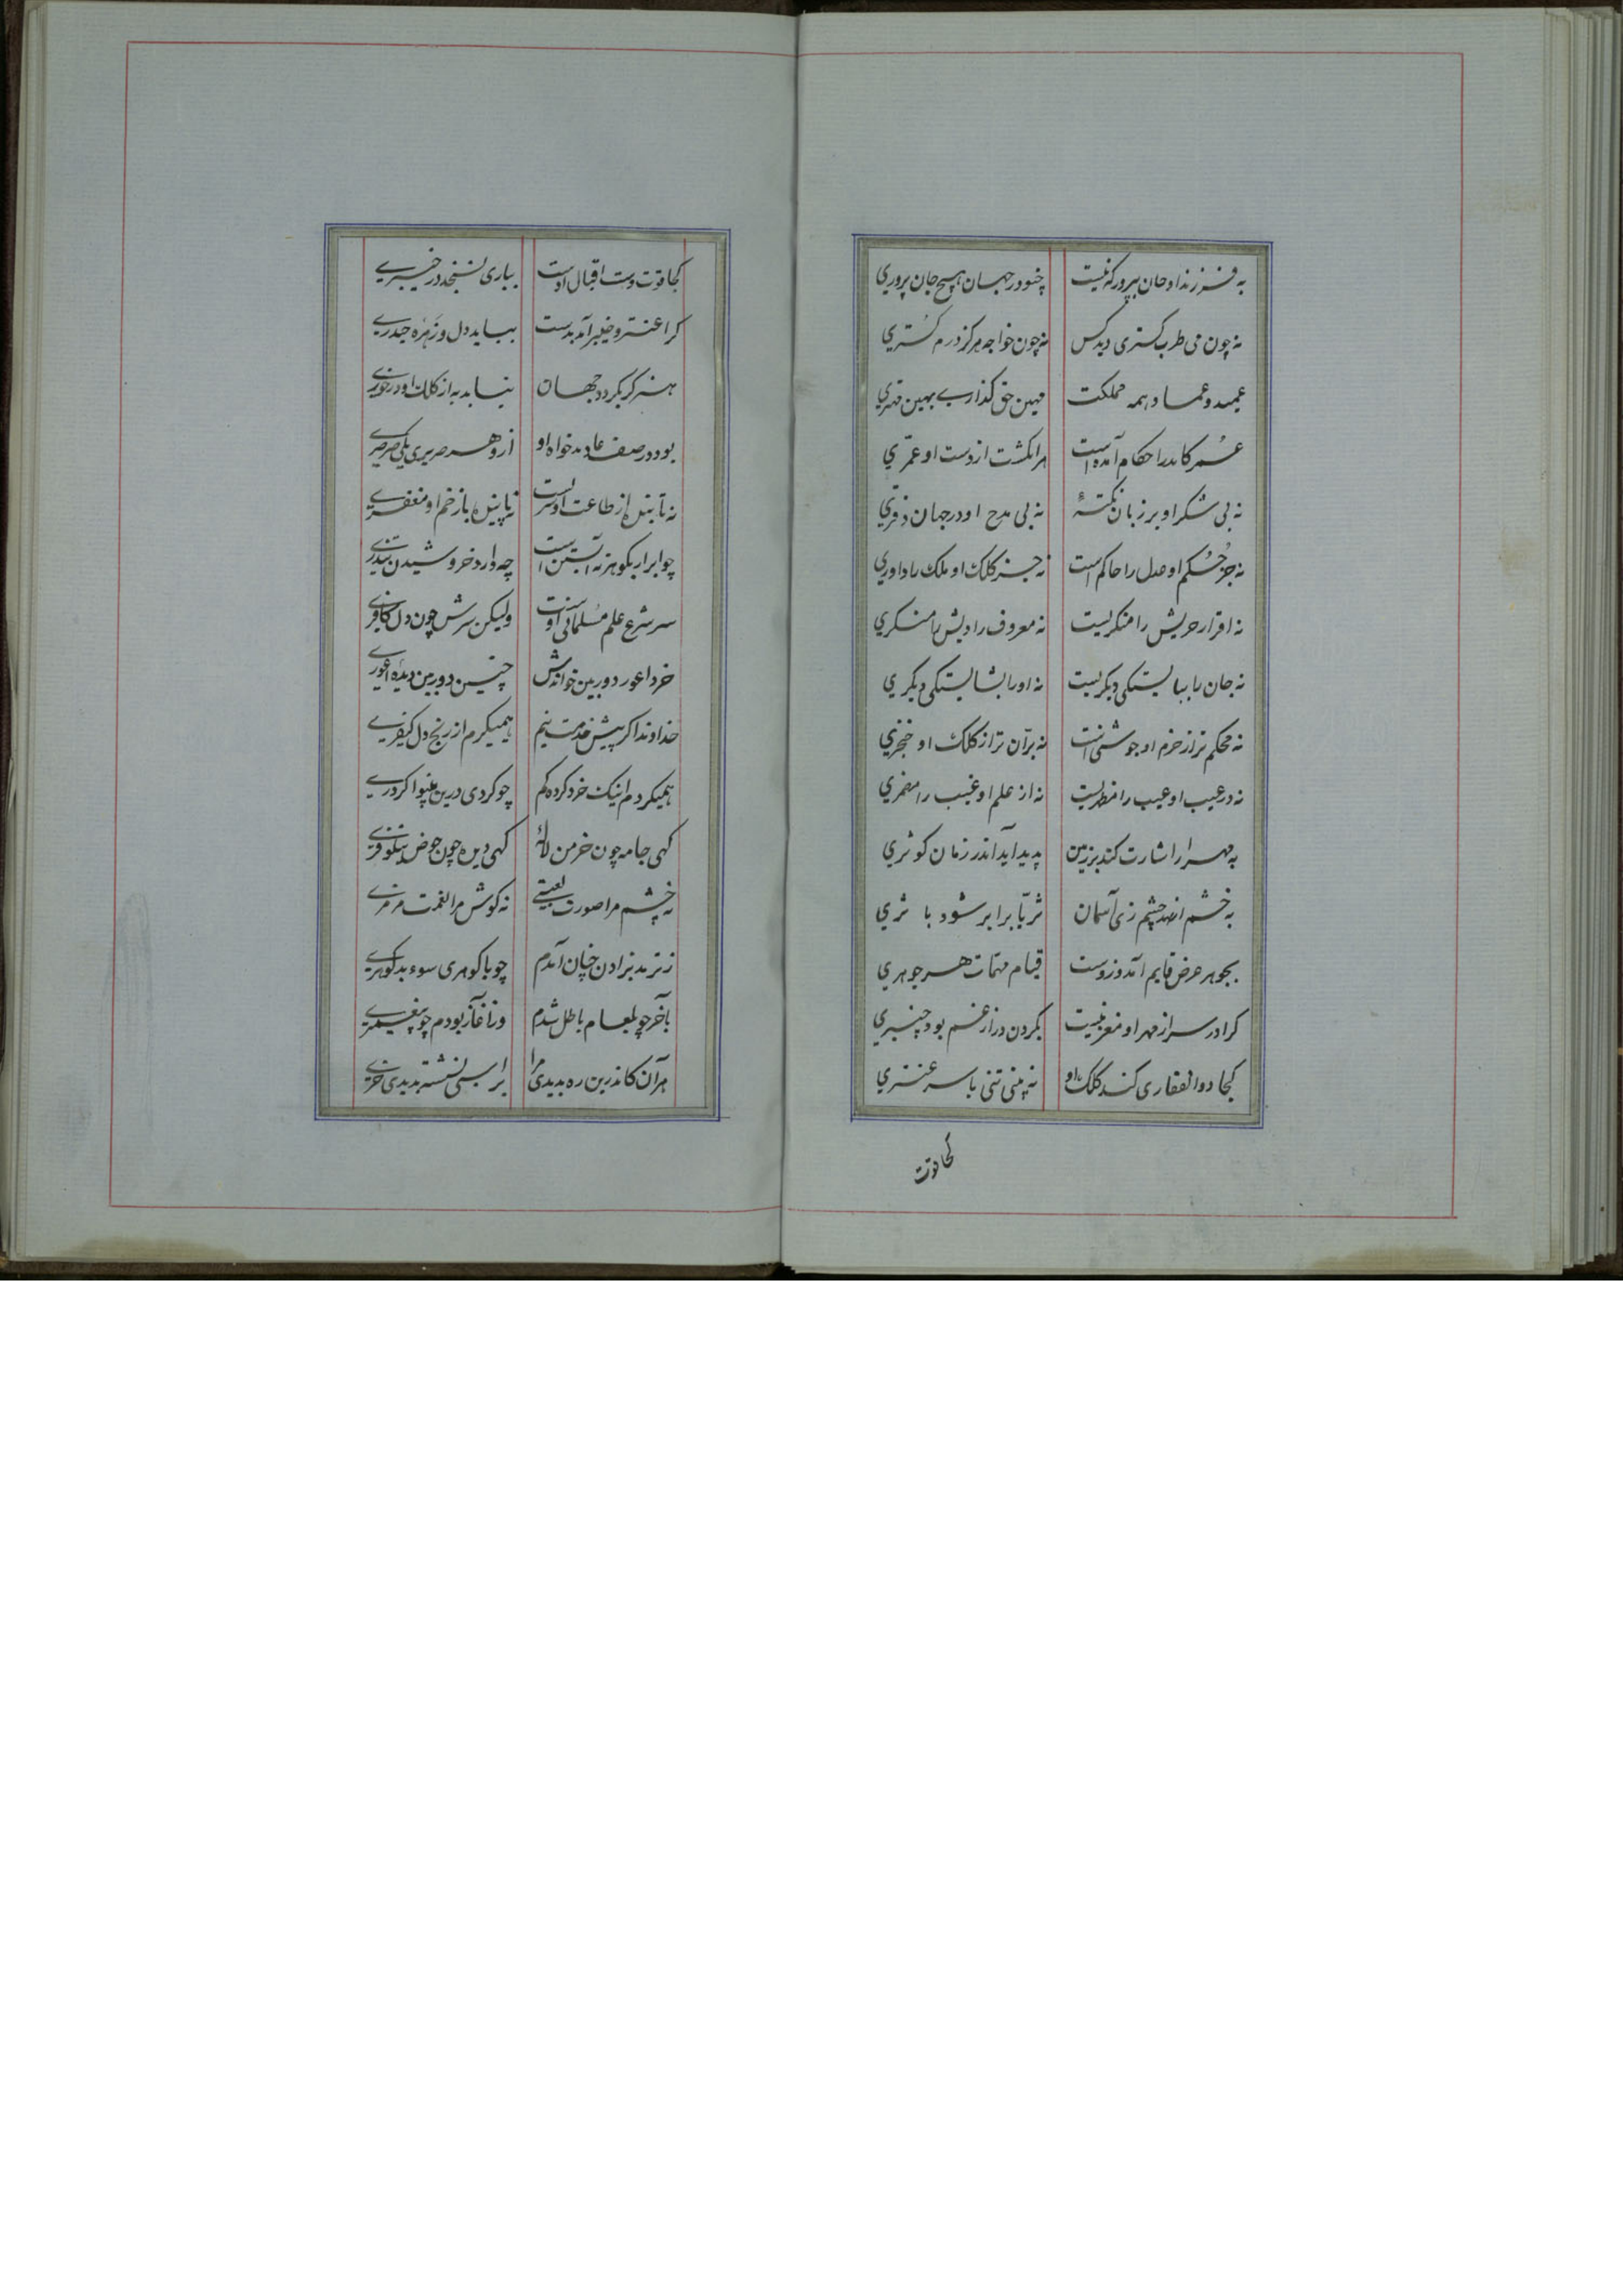 به فرزند او جان بپرور که نیست چنو در جهان هیچ جان پروری
نه چون می طرب گستری دید کس نه چون خواجه هرگز درم گستری
عمید و عماد همه مملکت مهین حق گذاری بهین مهتری
عمر کاندر احکام آمده است هر انگشت از دست او عمّری
نه بی شکر او بر زبان نکتهٔ نه بی مدح او در جهان دفتری
نه جز حُکم او عدل را حاکم است نه جز کلک او ملک را داوری
نه اقرار حریش را منکریست نه معروف رادیش را منکری
نه جان را ببایستگی دیگریست نه او را بشایستگی دیگری
نه محکم تر از حزم او جوشنی است نه برّان تر از کلک او خنجری
نه در عیب او عیب را مظهریست نه از علم او غیب را مضمری
به مهر ار اشارت کند بر زمین پدید آید اندر زمان کوثری
به خشم ار نهد چشم زی آسمان ثریّا برابر شود با ثری
بجوهر عرض قایم آمد وزوست قیام مهمّات هر جوهری
کرا در سر از مهر او مغز نیست بگردن در از غم بود چنبری
کجا ذوالفقاری کند کلک او نه بینی تنی با سر عنتری
کجا قوت
کجا قوت دست اقبال اوست بباری نسنجد در خیبری
کرا عنتر و خیبر آمد بدست بباید دل و زَهرهٔ حیدری
هنر گر بگردد جهان نیابد به از کلک او در خوری
بود در صف عاد بدخواه او ازو هر صریری یکی صرصری
نه تابنده از طاعت او سر است نه پاینده با زخم او مغفری
چو ابر ار بگوهر نه آبستن است چه دارد خروشیدن تندری
سر شرع علم مُسلمانی اوست ولیکن سرش چون دل کافری
خرد اعور دوربین خواندش چنین دوربین دیدهٔ اعوری
خداوندا گر پیش خدمت نیم همیگیرم از رنج دل کیفری
همیگردم اینک خرد کرده گم چو کردی درین
گهی جامه چون خرمن لالهٔ گهی دیده چون حوض نیلوفری
نه چشم مرا صورت لعبتی نه گوش مرا نغمت مزمری
ز ترمد بزادن چنان آمدم چو با گوهری سوء بد گوهری
بآخر چو بلعام باطل شدم وز آغاز بودم چو پیغمبری
هر آن کاندرین ره بدیدی مرا بر اسبی نشسته بدیدی خری